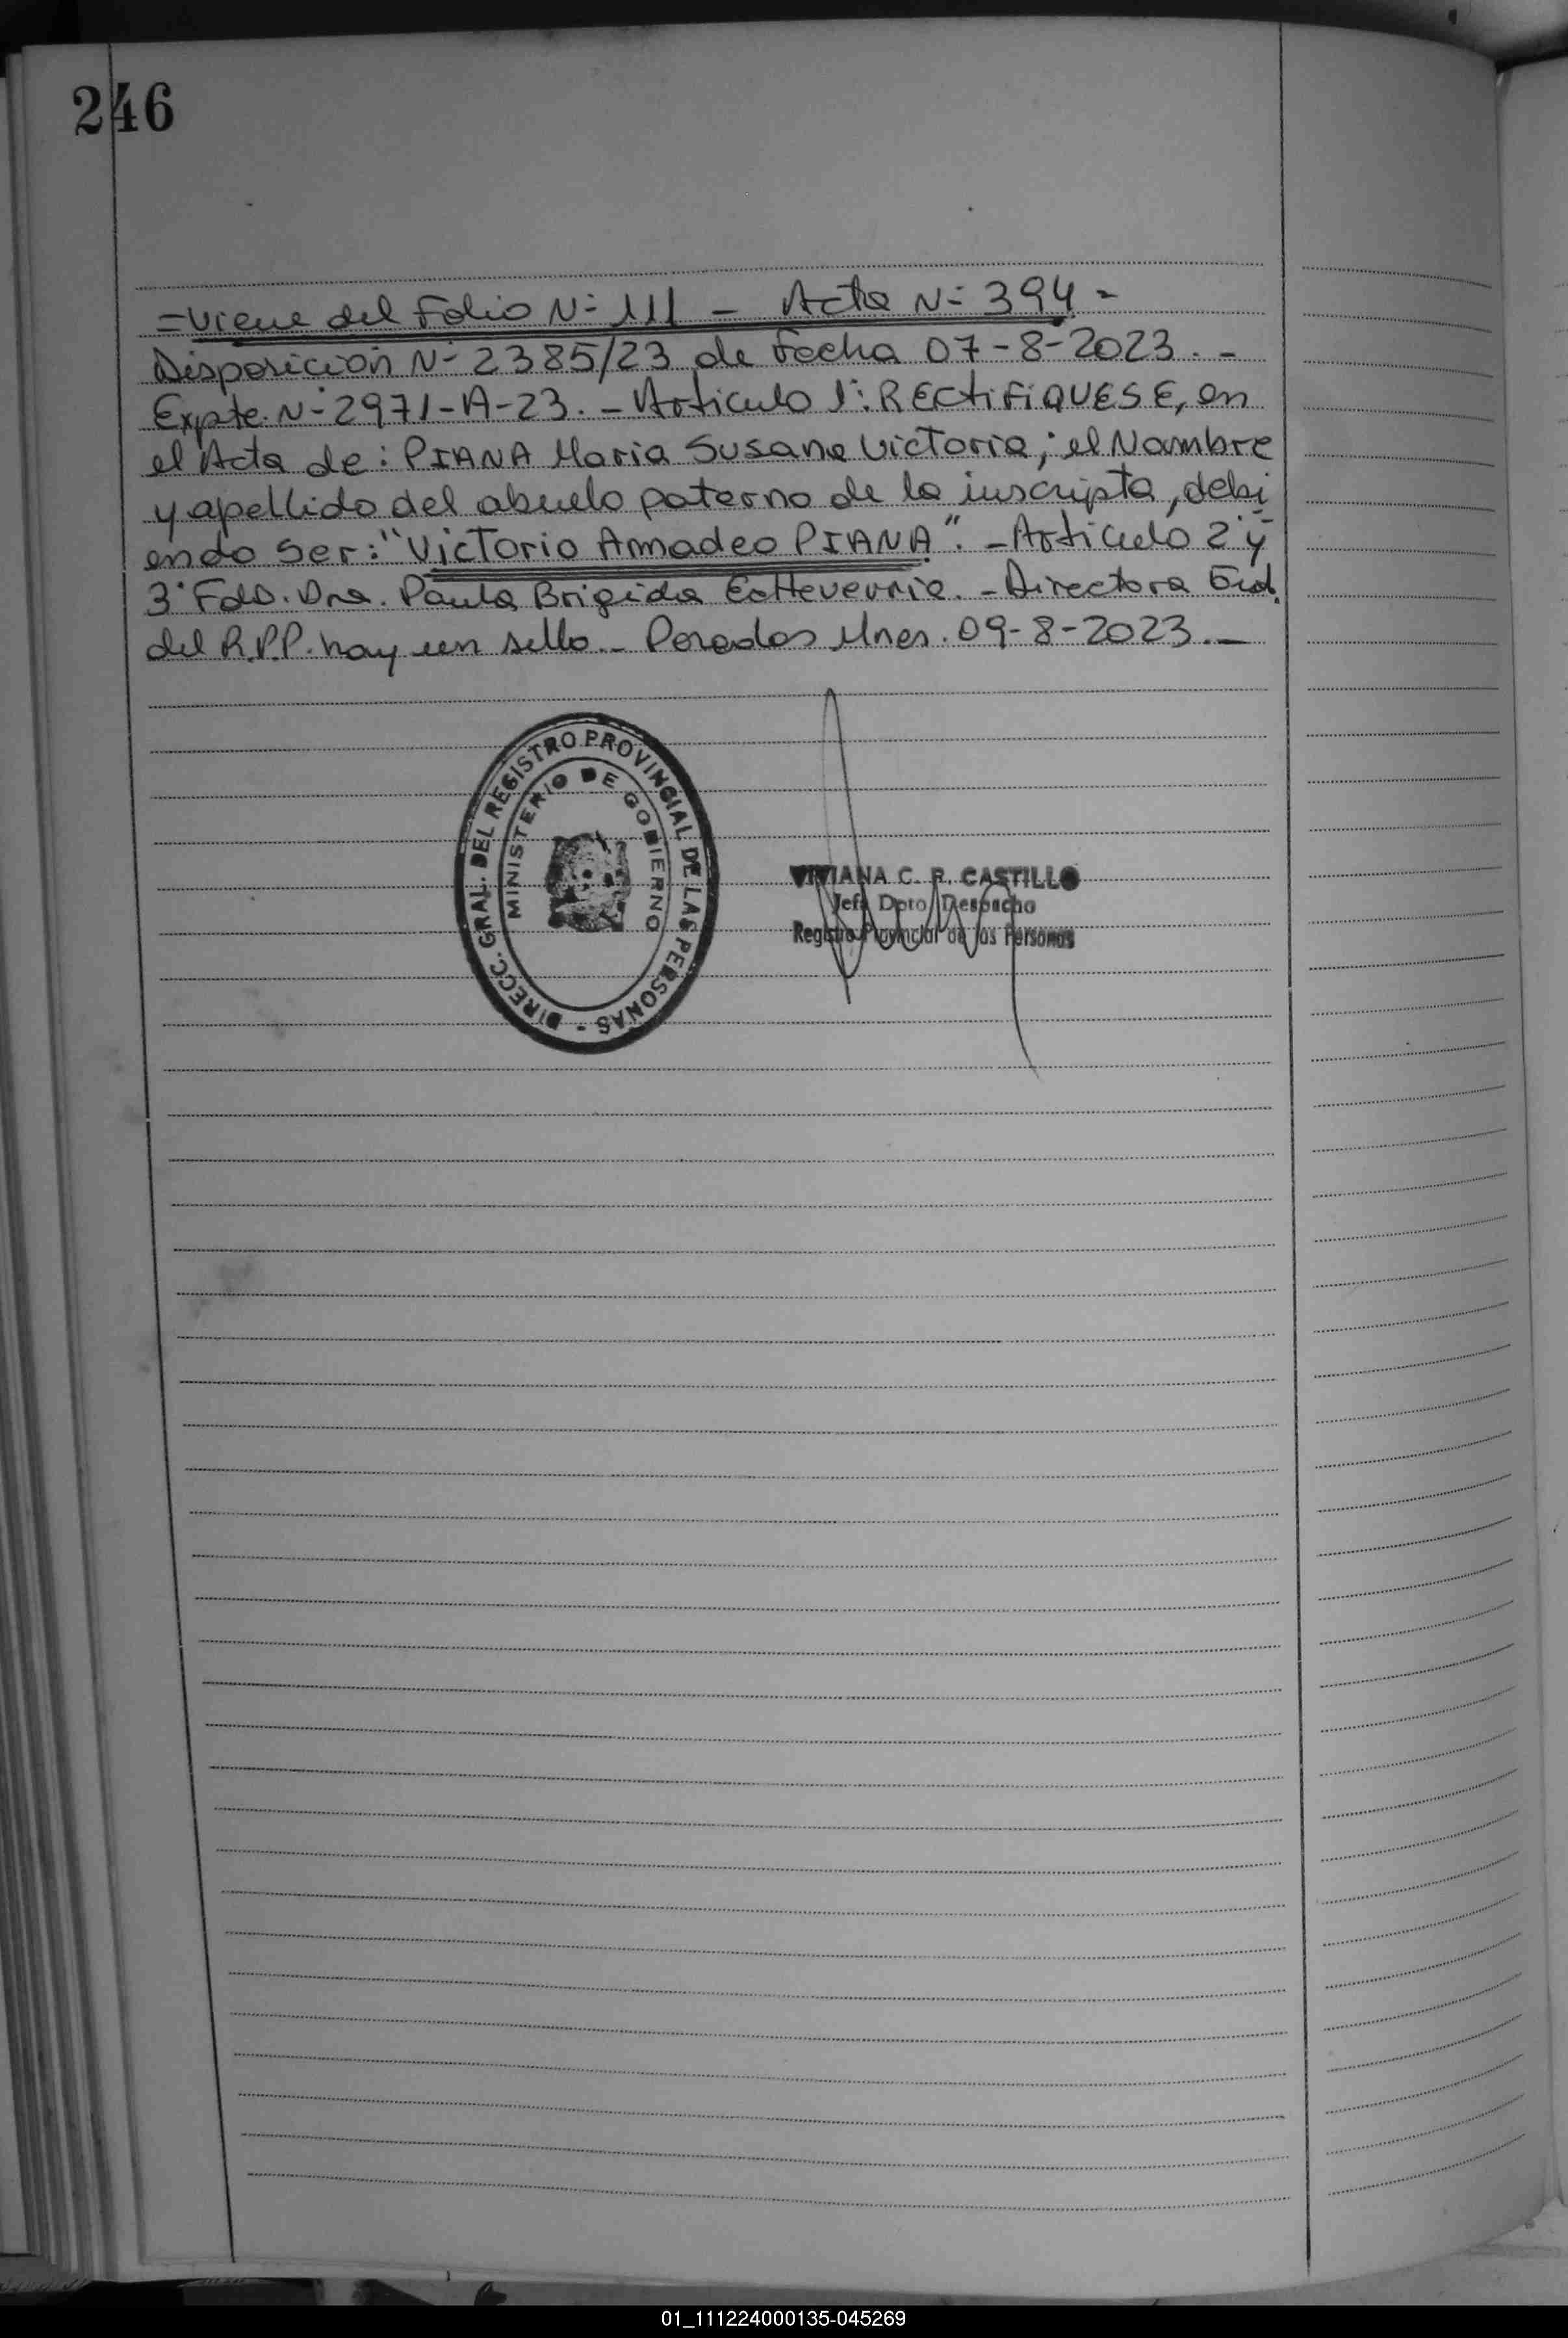 246
=Viene del Folio N° 111 - Acta N° 394 -
Disposición N° 2385/23 de Fecha 07-8-2023. -
Expte. N° 2971-A-23. - Artículo 1°: RECTIFIQUESE, en
el Acta de: PIANA Maria Susana Victoria; el Nombre
y apellido del abuelo paterno de la inscripta, debi
endo ser: "Victorio Amadeo PIANA". - Artículo 2° y
3° Fdo. Dra. Paula Brigida Echeverria. - Directora Gral.
del R.P.P. hay un sello. - Posadas Mnes. 09-8-2023. -
DIRECC. GRAL. DEL REGISTRO PROVINCIAL DE LAS PERSONAS -
MINISTERIO DE GOBIERNO
VIVIANA C. R. CASTILLO
Jefa Dpto. Despacho
Registro Provincial de las Personas
01_111224000135-045269